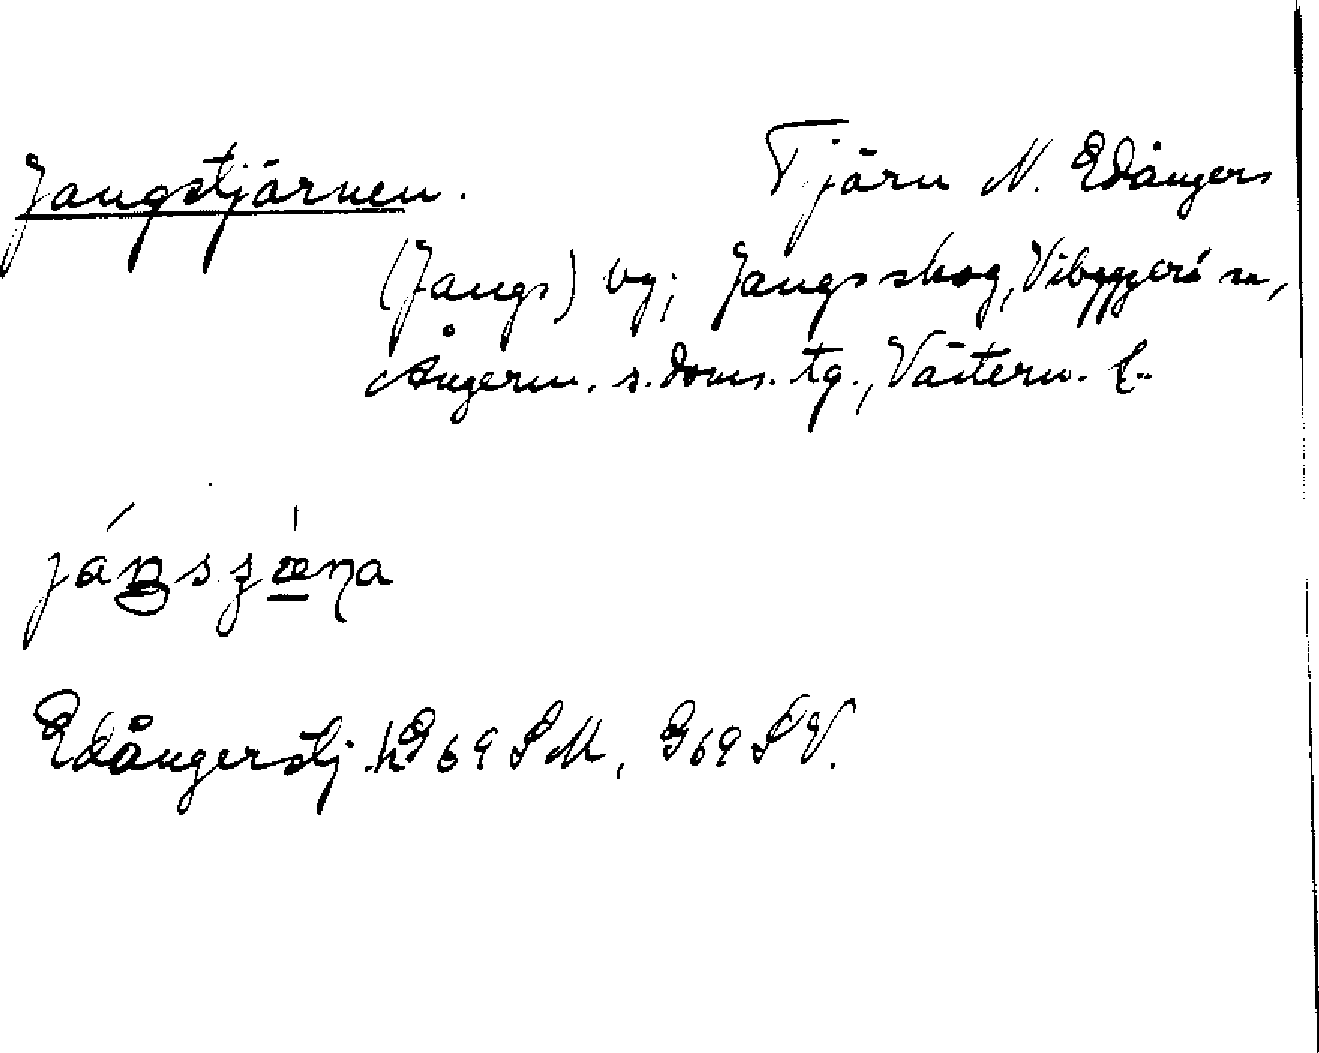 Jangstjärnen. Tjärn N. Edångers
(Jangs) by; Jangs skog, Vibyggerå sn,
Ångerm. s. doms. tg., Västern. l.
Edångerstj. h G 69 S M, G 69 S V.